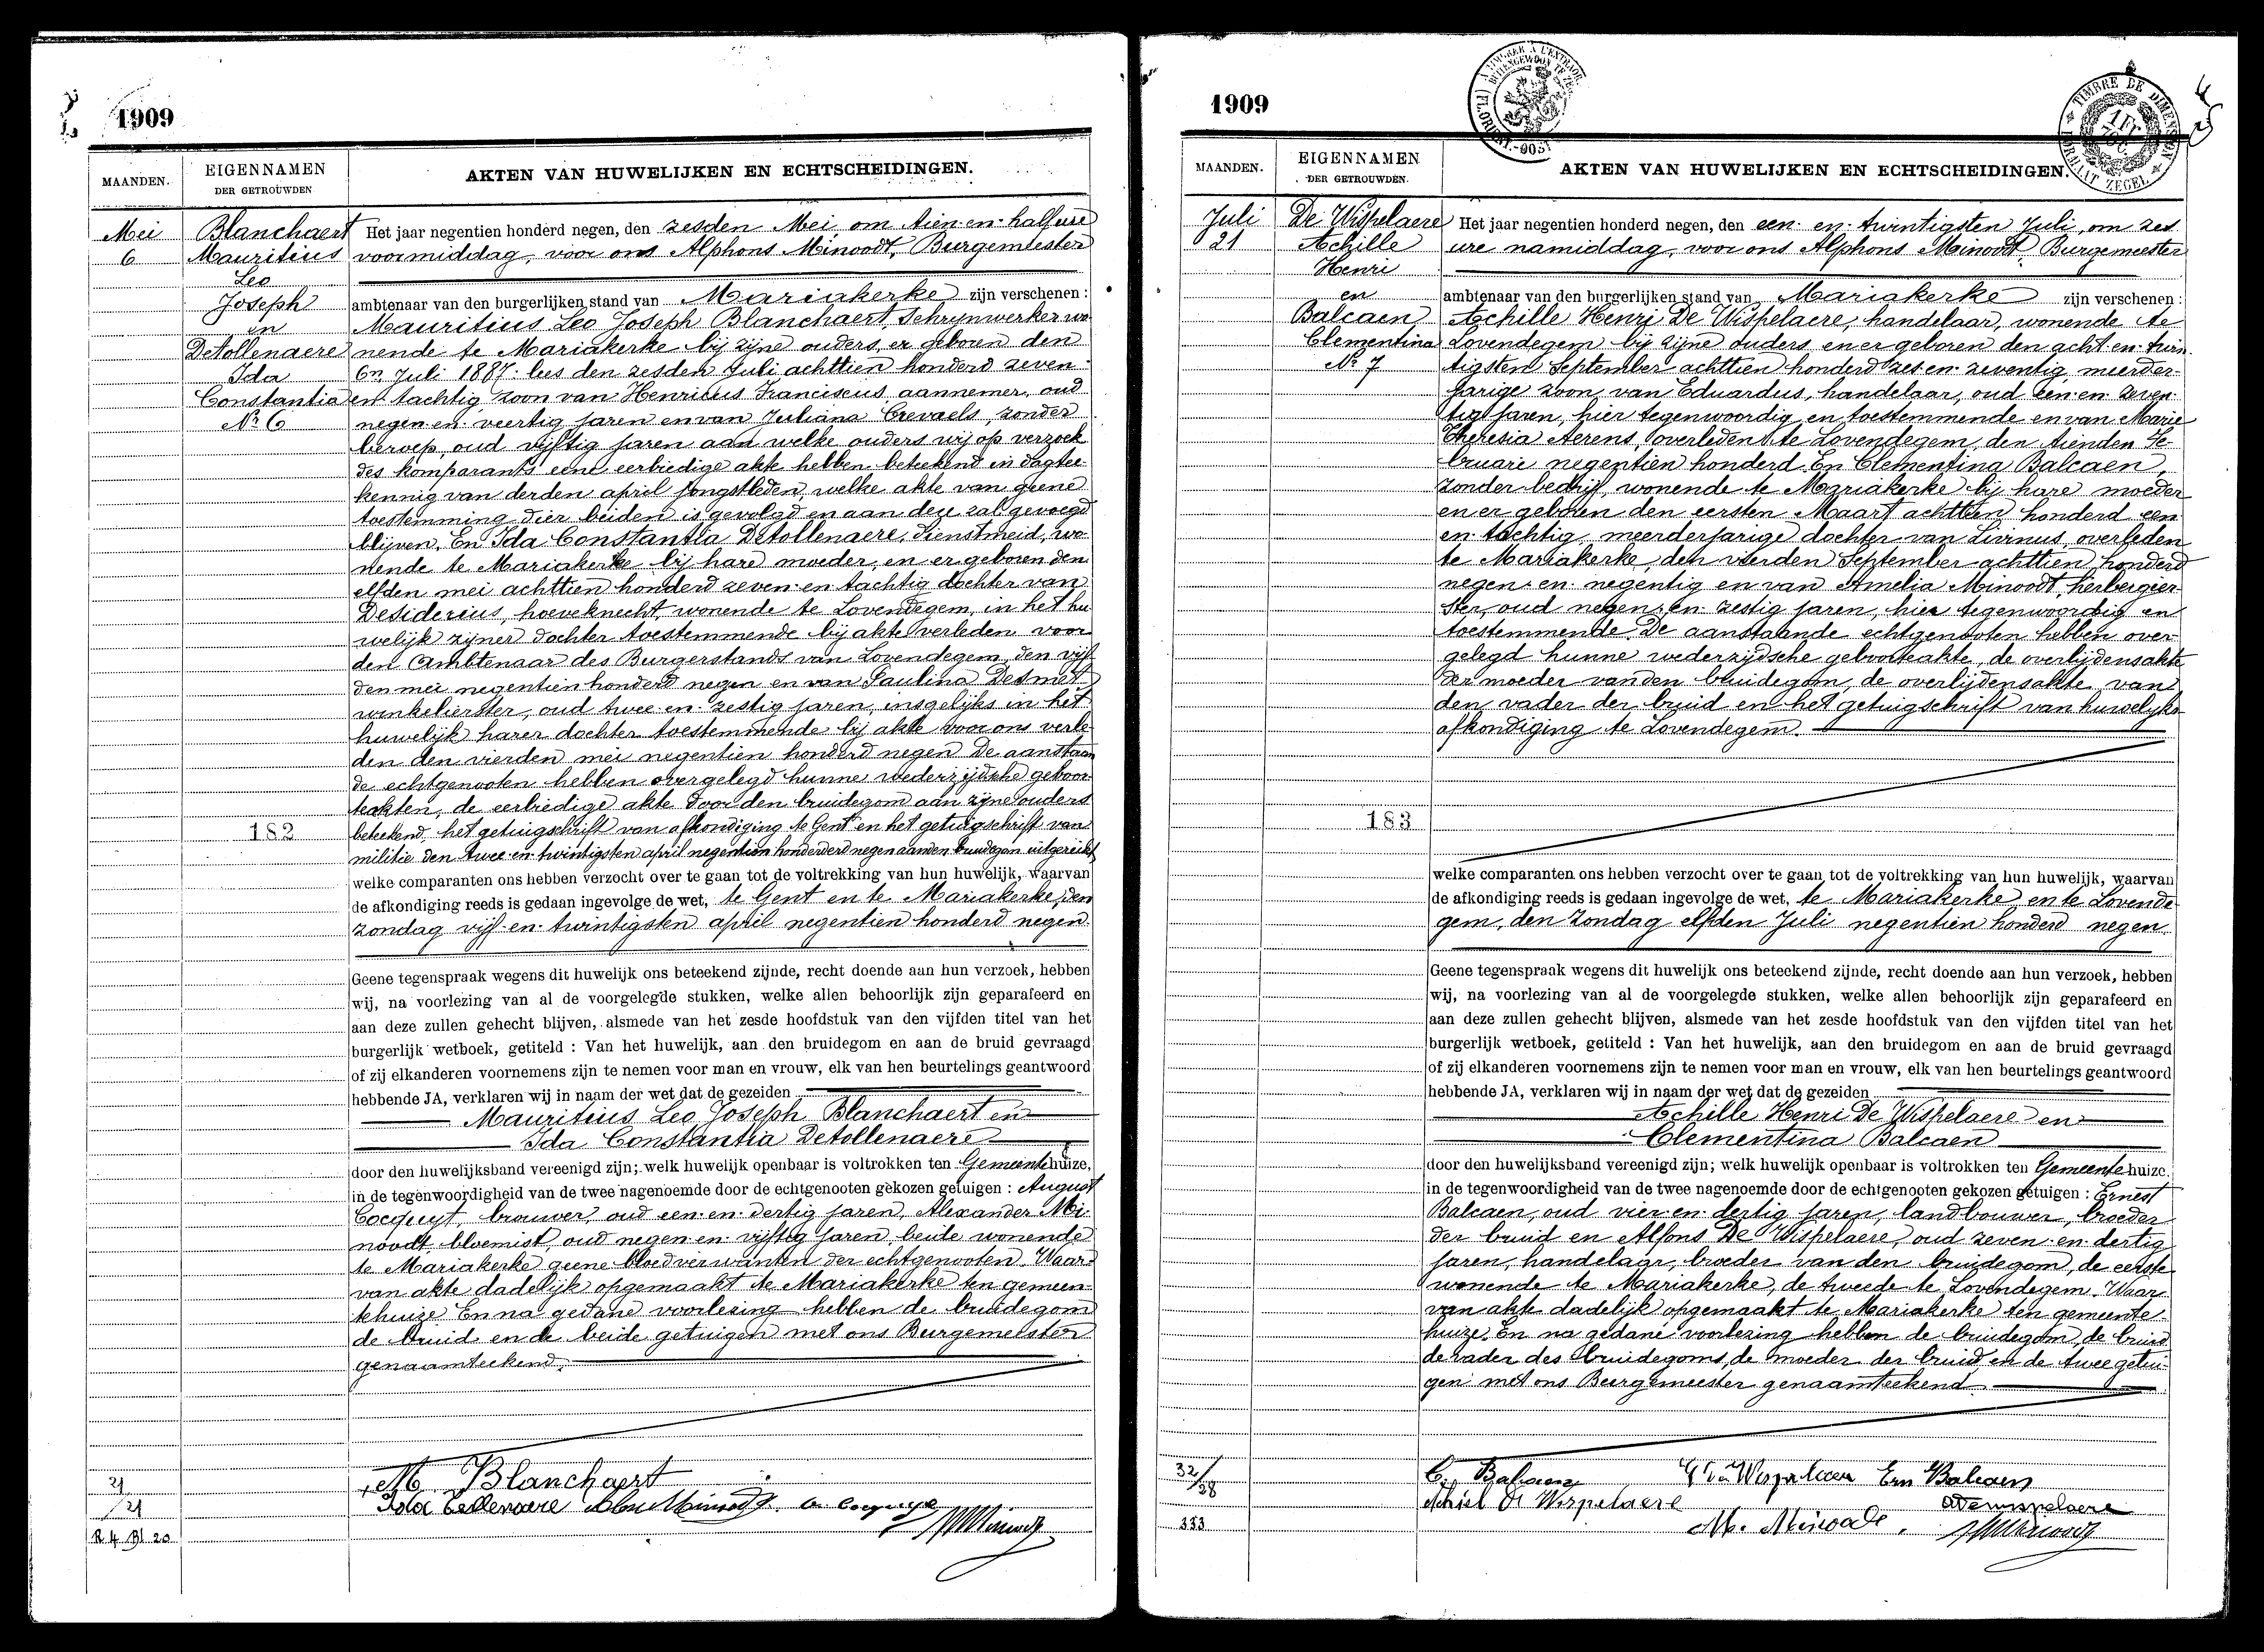 1909
MAANDEN.
EIGENNAMEN
DER GETROUWDEN
AKTEN VAN HUWELIJKEN EN ECHTSCHEIDINGEN.
Mei
6
Blanchaert
Mauritius
Leo
Joseph
en
Detollenaere
Ida
Constantia
No 6
182
Het jaar negentien honderd negen, den zesden Mei, om tien en half ure
voormiddag, voor ons Alphons Minoodt, Burgemeester
ambtenaar van den burgerlijken stand van Mariakerke zijn verschenen :
Mauritius Leo Joseph Blanchaert, Schrijnwerker wo
nende te Mariakerke bij zijne ouders, er geboren den
6n Juli 1887 lees den zesden Juli achttien honderd zeven
en tachtig zoon van Henricus Franciscus aannemer, oud
negen en veertig jaren en van Juliana Crevaels, zonder
beroep, oud vijftig jaren aan welke ouders wij op verzoek
des komparants eene eerbiedige akte hebben beteekend in dagtee-
kennig van derden april jongstleden, welke akte van geene
toestemming dier beiden is gevolgd en aan deze zal gevoegd
blijven. En Ida Constantia Detollenaere, dienstmeid, wo
nende te Mariakerke bij hare moeder, en er geboren den
elfden mei achttien honderd zeven en tachtig dochter van
Desiderius, hoeveknecht, wonende te Lovendegem, in het hu
welijk zijner dochter toestemmende bij akte verleden voor
den Ambtenaar des Burgerstands van Lovendegem, den vijf
den mei negentien honderd negen en van Paulina Desmet
winkelierster, oud twee en zestig jaren, insgelijks in het
huwelijk harer dochter toestemmende bij akte voor ons verle
den den vierden mei negentien honderd negen De aanstaan
de echtgenooten hebben overgelegd hunne wederzijdsche geboor
teakten, de eerbiedige akte door den bruidegom aan zijne ouders
beteekend, het getuigschrift van afkondiging te Gent en het getuigschrift van
militie den twee en twintigsten april negentien honderd negen aan den bruidegom uitgereikt
welke comparanten ons hebben verzocht over te gaan tot de voltrekking van hun huwelijk, waarvan
de afkondiging reeds is gedaan ingevolge de wet, te Gent en te Mariakerke, den
zondag vijf en twintigsten april negentien honderd negen
Geene tegenspraak wegens dit huwelijk ons beteekend zijnde, recht doende aan hun verzoek, hebben
wij, na voorlezing van al de voorgelegde stukken, welke allen behoorlijk zijn geparafeerd en
aan deze zullen gehecht blijven, alsmede van het zesde hoofdstuk van den vijfden titel van het
burgerlijk wetboek, getiteld : Van het huwelijk, aan den bruidegom en aan de bruid gevraagd
of zij elkanderen voornemens zijn te nemen voor man en vrouw, elk van hen beurtelings geantwoord
hebbende JA, verklaren wij in naam der wet dat de gezeiden
Mauritius Leo Joseph Blanchaert en
Ida Constantia Detollenaere
door den huwelijksband vereenigd zijn; welk huwelijk openbaar is voltrokken ten Gemeentehuize,
in de tegenwoordigheid van de twee nagenoemde door de echtgenooten gekozen getuigen : August
Cocquyt brouwer, oud een en dertig jaren, Alexander Mi-
noodt bloemist, oud negen en vijftig jaren, beide wonende
te Mariakerke geene bloedverwanten der echtgenooten. Waar
van akte dadelijk opgemaakt te Mariakerke ten gemeen-
tehuize En na gedane voorlezing hebben de bruidegom
de bruid en de beide getuigen met ons Burgemeester
genaamteekend.
M Blanchaert
21
/21
R 4 Bl 20
1909
TIMBRE DE DIMENSION
MAANDEN.
EIGENNAMEN
DER GETROUWDEN.
AKTEN VAN HUWELIJKEN EN ECHTSCHEIDINGEN.
Juli
21
De Wispelaere
Achille
Henri
en
Balcaen
Clementina
No 7
183
Het jaar negentien honderd negen, den een en twintigsten Juli, om zes
ure namiddag, voor ons Alphons Minoodt, Burgemeester
ambtenaar van den burgerlijken stand van Mariakerke zijn verschenen :
Achille Henri De Wispelaere, handelaar, wonende te
Lovendegem bij zijne ouders en er geboren den acht en twin-
tigsten September achttien honderd zes en zeventig meerder-
jarige zoon van Eduardus, handelaar, oud een en zeven
tig jaren, hier tegenwoordig en toestemmende en van Marie
Theresia Aerens, overleden te Lovendegem, den tienden Fe-
bruari negentien honderd. En Clementina Balcaen,
zonder bedrijf, wonende te Mariakerke bij hare moeder
en er geboren den eersten Maart achttien honderd een
en tachtig, meerderjarige dochter van Livinus, overleden
te Mariakerke, den vierden September achttien honderd
negen en negentig en van Amelia Minoodt, herbergier-
ster, oud negen en zestig jaren, hier tegenwoordig en
toestemmende. De aanstaande echtgenooten hebben over-
gelegd hunne wederzijdsche geboorteakte, de overlijdensakte
der moeder van den bruidegom, de overlijdensakte van
den vader der bruid en het getuigschrift van huwelijks
afkondiging te Lovendegem.
welke comparanten ons hebben verzocht over te gaan tot de voltrekking van hun huwelijk, waarvan
de afkondiging reeds is gedaan ingevolge de wet, te Mariakerke en te Lovende-
gem, den Zondag elfden Juli negentien honderd negen.
Geene tegenspraak wegens dit huwelijk ons beteekend zijnde, recht doende aan hun verzoek, hebben
wij, na voorlezing van al de voorgelegde stukken, welke allen behoorlijk zijn geparafeerd en
aan deze zullen gehecht blijven, alsmede van het zesde hoofdstuk van den vijfden titel van het
burgerlijk wetboek, getiteld : Van het huwelijk, aan den bruidegom en aan de bruid gevraagd
of zij elkanderen voornemens zijn te nemen voor man en vrouw, elk van hen beurtelings geantwoord
hebbende JA, verklaren wij in naam der wet dat de gezeiden
Achille Henri De Wispelaere en
Clementina Balcaen
door den huwelijksband vereenigd zijn; welk huwelijk openbaar is voltrokken ten Gemeentehuize,
in de tegenwoordigheid van de twee nagenoemde door de echtgenooten gekozen getuigen : Ernest
Balcaen, oud vier en dertig jaren, landbouwer, broeder
der bruid en Alfons De Wispelaere, oud zeven en dertig
jaren, handelaar, broeder van den bruidegom, de eerste
wonende te Mariakerke, de tweede te Lovendegem. Waar
van akte dadelijk opgemaakt te Mariakerke ten gemeente-
huize. En na gedane voorlezing hebben de bruidegom, de bruid
de vader des bruidegoms, de moeder der bruid en de twee getui-
gen met ons Burgemeester genaamteekend.
C. Balcaen
Ern Balcaen
Achiel De Wispelaere
32/38
333